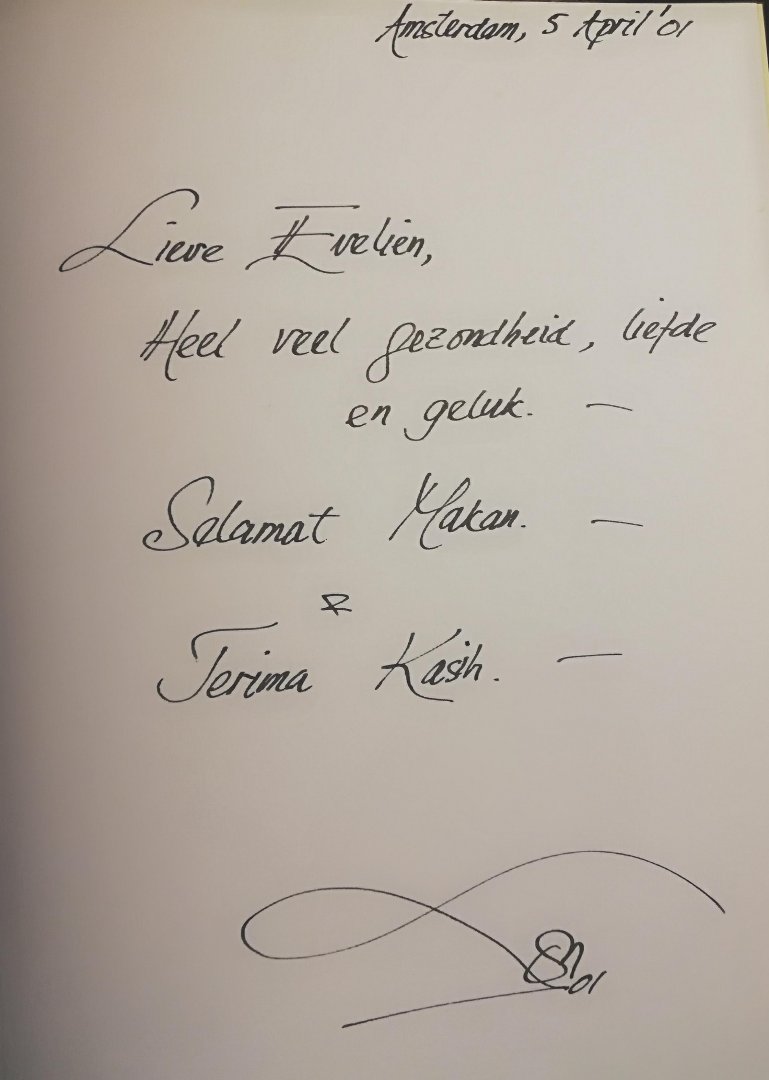 Amsterdam, 5 April '01
Lieve Evelien,
Heel veel gezondheid, liefde
en geluk. —
Selamat Makan. —
&
Terima Kasih. —
01